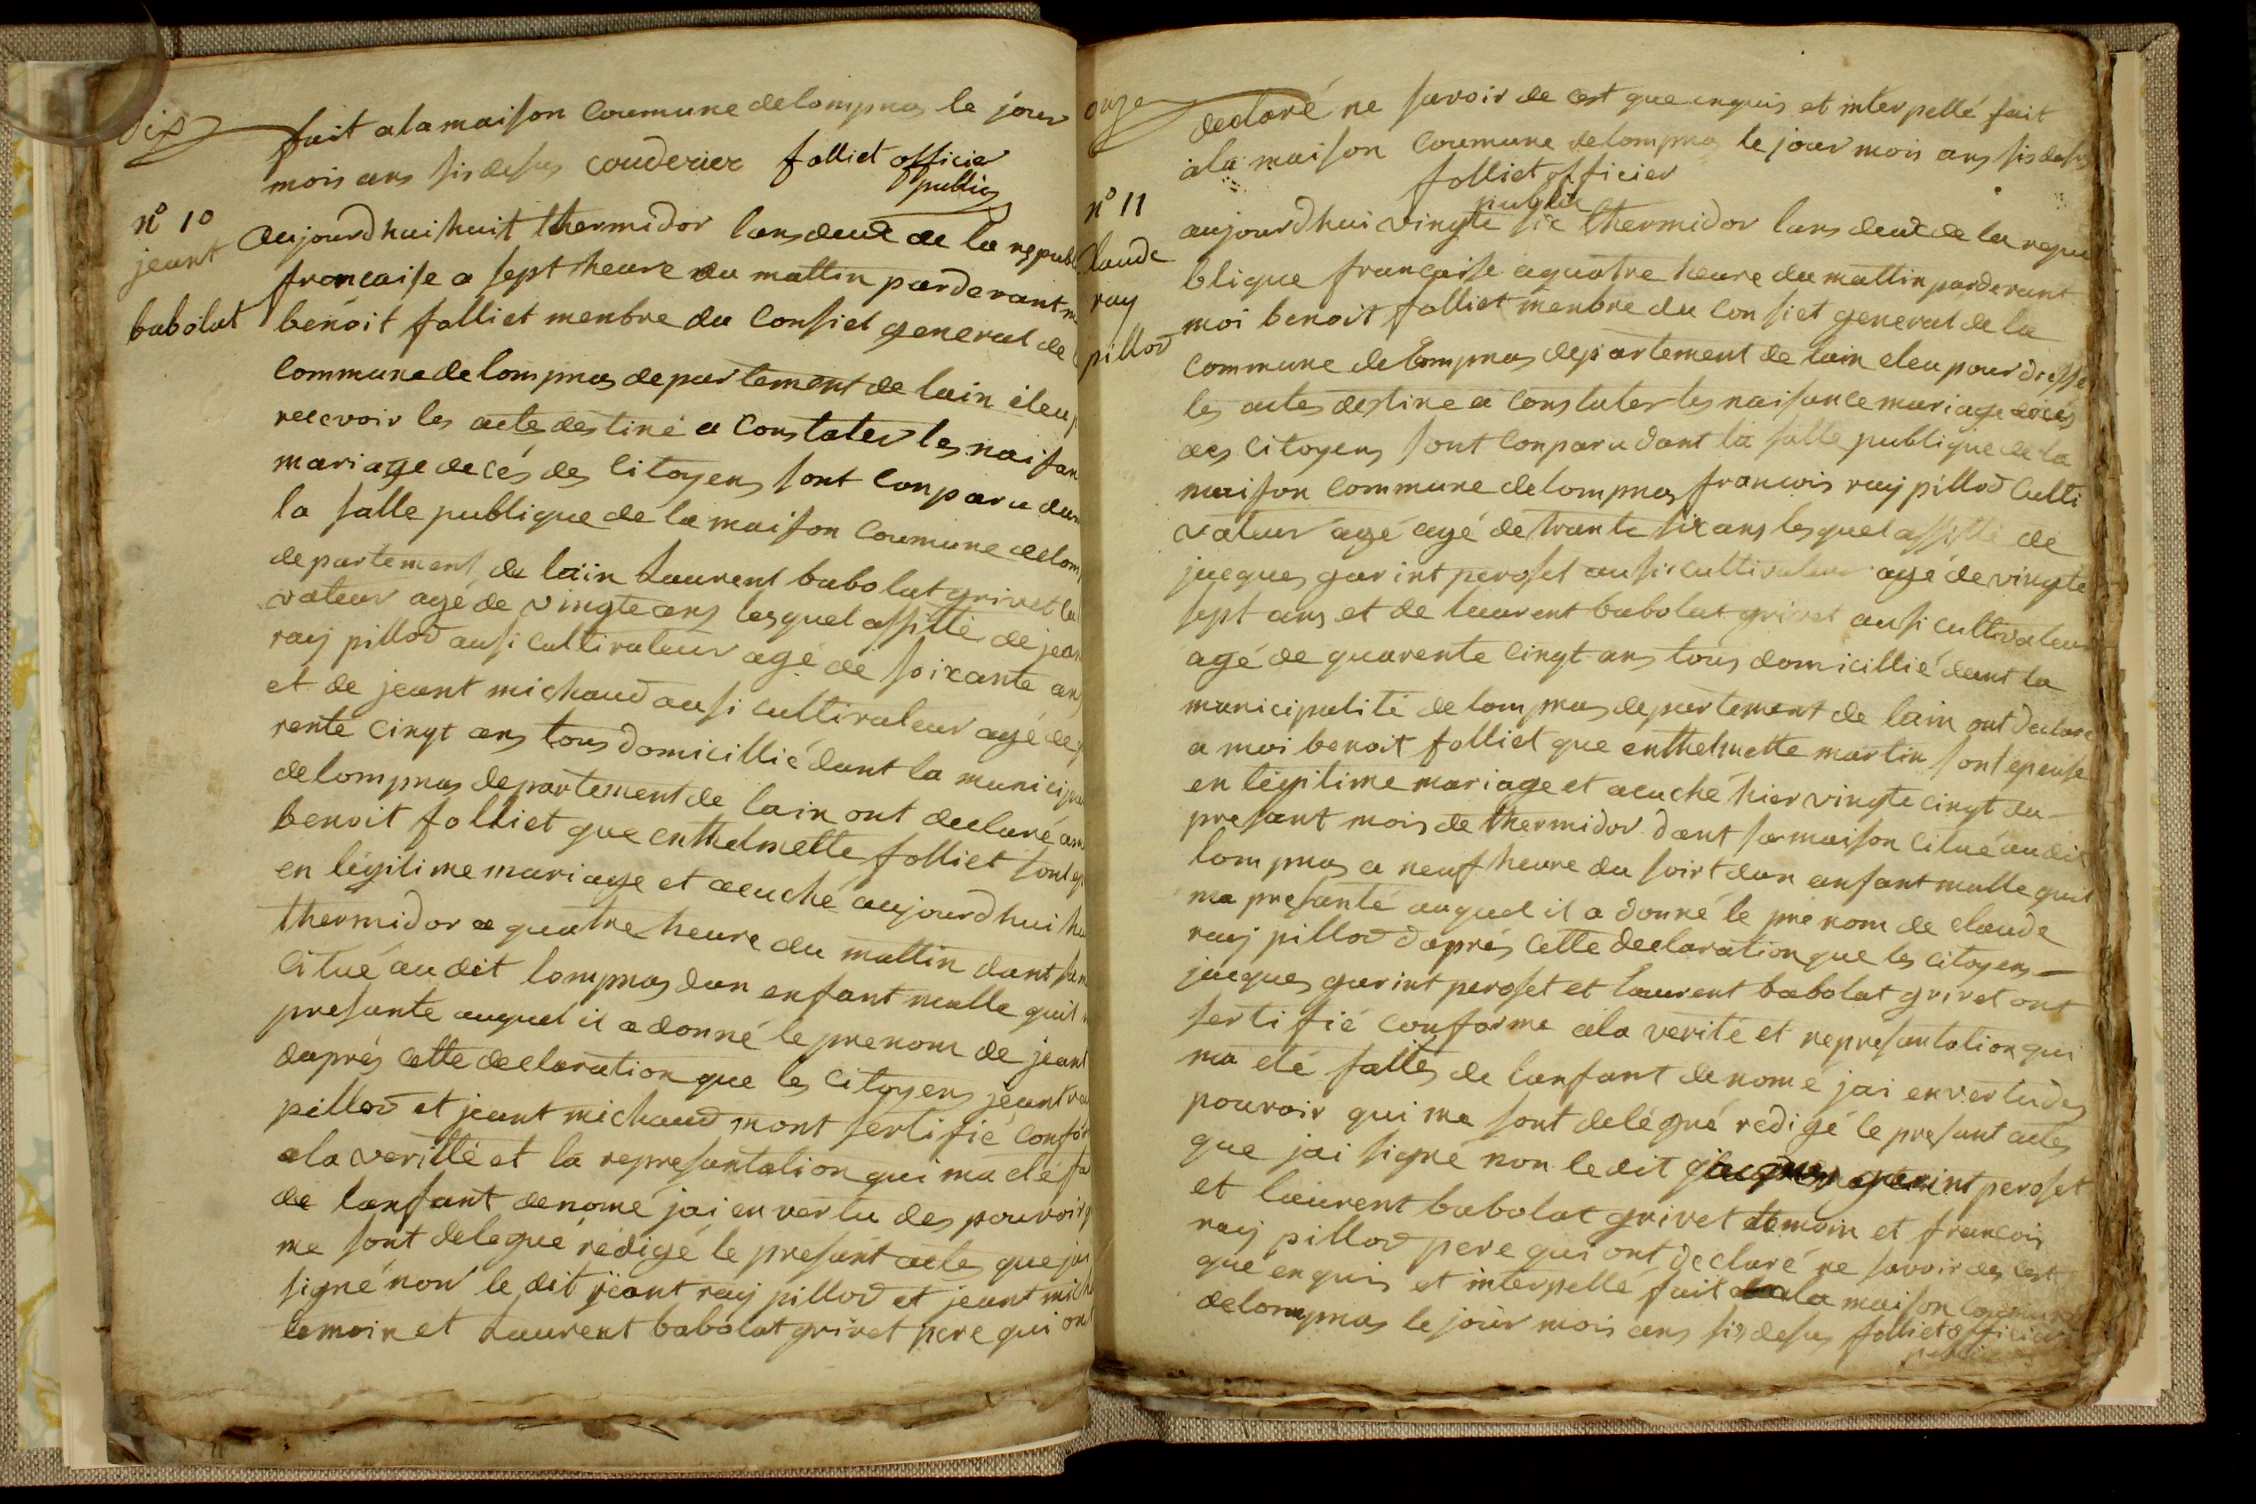 dix
fait a la maison Coumune delompnas le jour
mois ans sis desus couderier folliet officier
public
n° 10
jeant
babolat
aujourdhui huit thermidor lans deux de la republ
francaise a sept heure du mattin pardevant m
benoit folliet menbre du Consiel general de
Commune delompnas departement de lain éleu p
recevoir les actes destiné a Constater les naisan
mariage decés des Citoyens sont Conparu dan
la salle publique dé la maison Coumune delom
departement de lain Laurent babolat grivet cul
vateur agé de vingte ans lesquel assitté de jean
ray pillod ausi cultivateur agé de soixante ans
et de jeant michaud ausi cultivateur agé de q
rente cinqt ans tous domicillié dant la municipa
delompnas departement de lain ont declaré a m
benoit folliet que enthelmette folliet sont ep
en légitime mariage et acuché aujourdhui hu
thermidor a quatre heure du mattin dant sa m
Citué audit lompnas dun enfant malle quil m
presante auquel il a donné le prenom de jeant
daprés cette declaration que les Citoyens jeant ra
pillod et jeant michaud mont sertifié confor
ala veritté et la represantation qui ma eté fa
de lanfant denomé jai en vertu des pouvoir q
me sont delegué rédigé le presant actes que jai
signé non le dit jeant ray pillod et jeant mich
temoin et Laurent babolat grivet pere qui ont
onze
declaré ne savoir de cest que enquis et interpellé fait
ala maison Coumune delompnas le jour mois ans sis desus
folliet officier
public
n° 11
Claude
ray
pillod
aujourdhui vingte sic thermidor lans deux de la repu
blique francaise a quatre heure du mattin pardevant
moi benoit folliet menbre du Consiet general de la
commune de lompnas departement de lain eleu pour dresse
les actes destine a Constater les naisance mariage décés
des Citoyens sont Conparu dant la salle publique de la
maison Commune delompnas francois ray pillod Culti
vateur agé agé de trante six ans lesquel assitté de
jacques garint peroset ausi cultivateur agé de vingte
sept ans et de laurent babolat grivet ausi cultivateur
agé de quarente cinqt ans tous domicillié dant la
municipalité delompnas departement de lain ont declaré
a moi benoit folliet que enthelmette martin sont epouse
en légitime mariage et acuché hier vingte cinqt du
presant mois de thermidor dant sa maison Citué audit
lompnas a neuf heure du soirt dun anfant malle quil
ma presanté auquel il a donné le pre nom de claude
ray pillod daprés cette declaration que les citoyens
jacques garint peroset et laurent babolat grivet ont
sertifié conforme ala verité et represantation qui
ma eté faittes de lanfant denomé jai en vertu des
pouvoir qui me sont delégué redigé le presant actes
que jai signé non le dit jacques garint peroset
et laurent babolat grivet temoin et francois
ray pillod pere qui ont declaré ne savoir de cest
que enquis et interpellé fait a la maison Coumune
delompnas le jour mois ans sis desus folliet officier
public